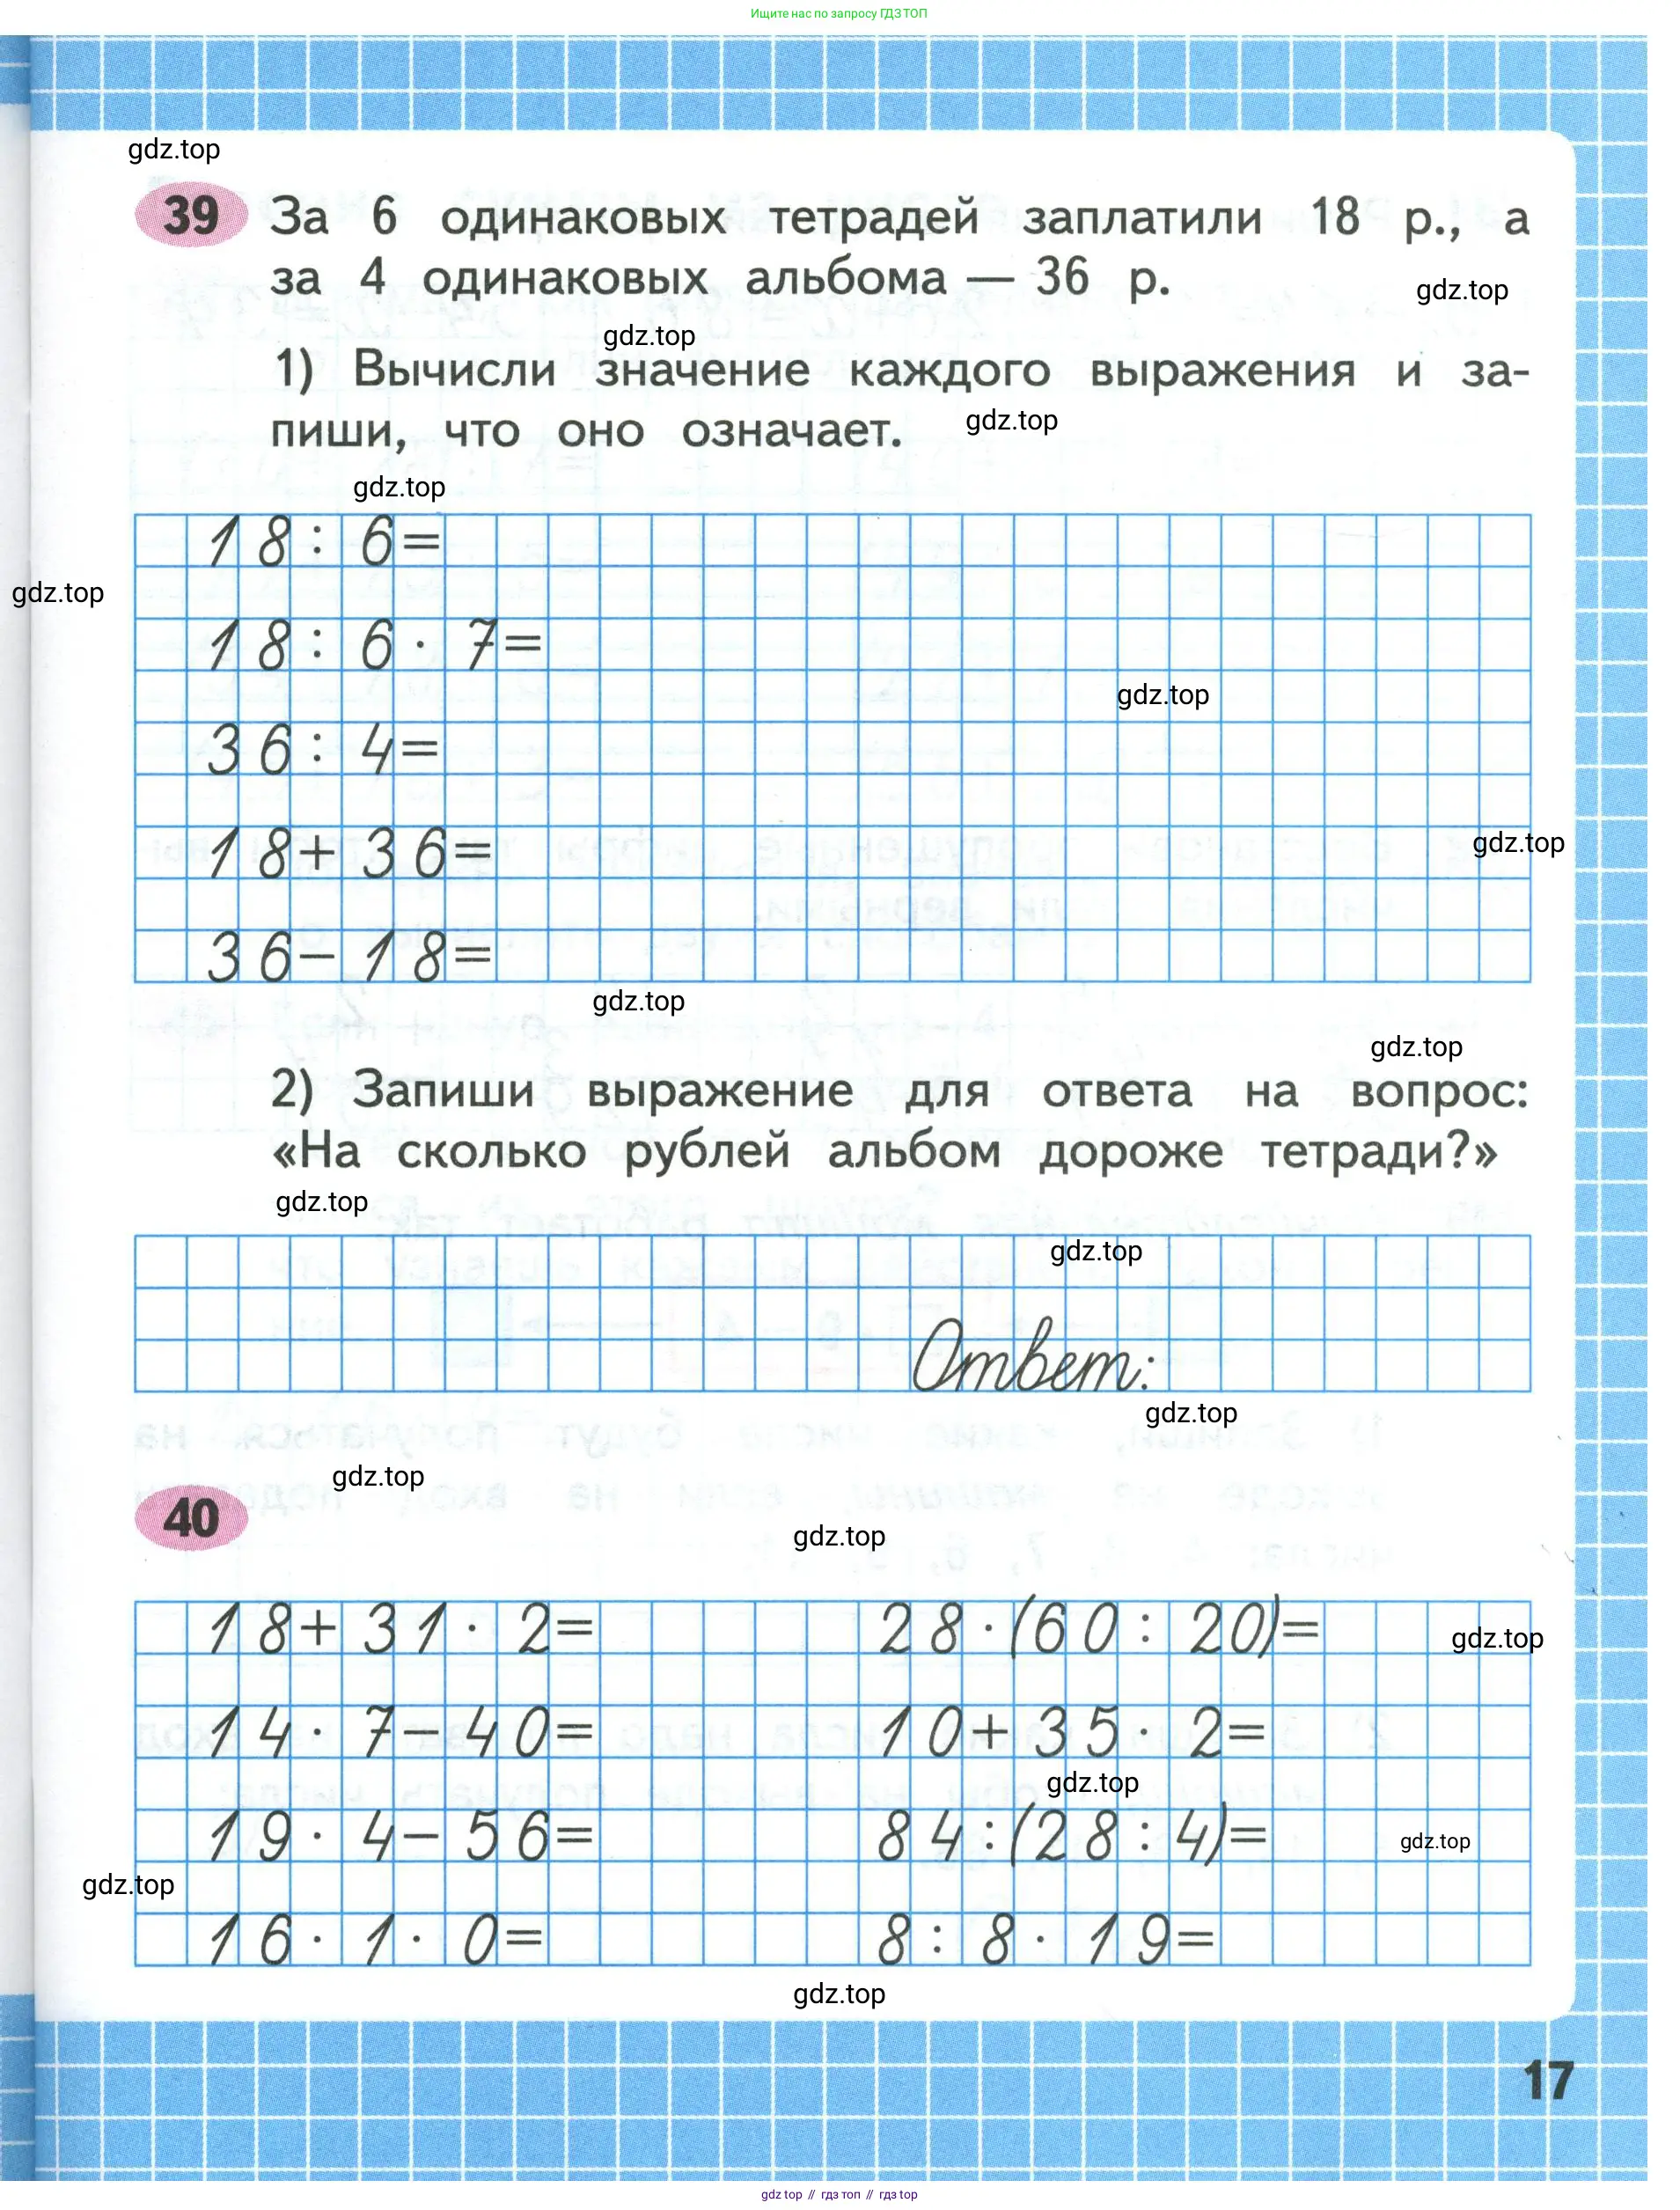 Ищите нас по запросу ГДЗ ТОП
gdz.top
39 За 6 одинаковых тетрадей заплатили 18 р., а
за 4 одинаковых альбома — 36 р.
gdz.top
gdz.top
1) Вычисли значение каждого выражения и за-
пиши, что оно означает.
gdz.top
gdz.top
18 : 6 =
gdz.top
18 : 6 · 7 =
gdz.top
36 : 4 =
18 + 36 =
gdz.top
36 – 18 =
gdz.top
gdz.top
2) Запиши выражение для ответа на вопрос:
«На сколько рублей альбом дороже тетради?»
gdz.top
gdz.top
Ответ:
gdz.top
gdz.top
40
gdz.top
18 + 31 · 2 = 28 · (60 : 20) =
gdz.top
14 · 7 – 40 = 10 + 35 · 2 =
gdz.top
19 · 4 – 56 = 84 : (28 : 4) =
gdz.top
gdz.top
16 · 1 · 0 = 8 : 8 · 19 =
gdz.top
17
gdz top // гдз топ // гдз top